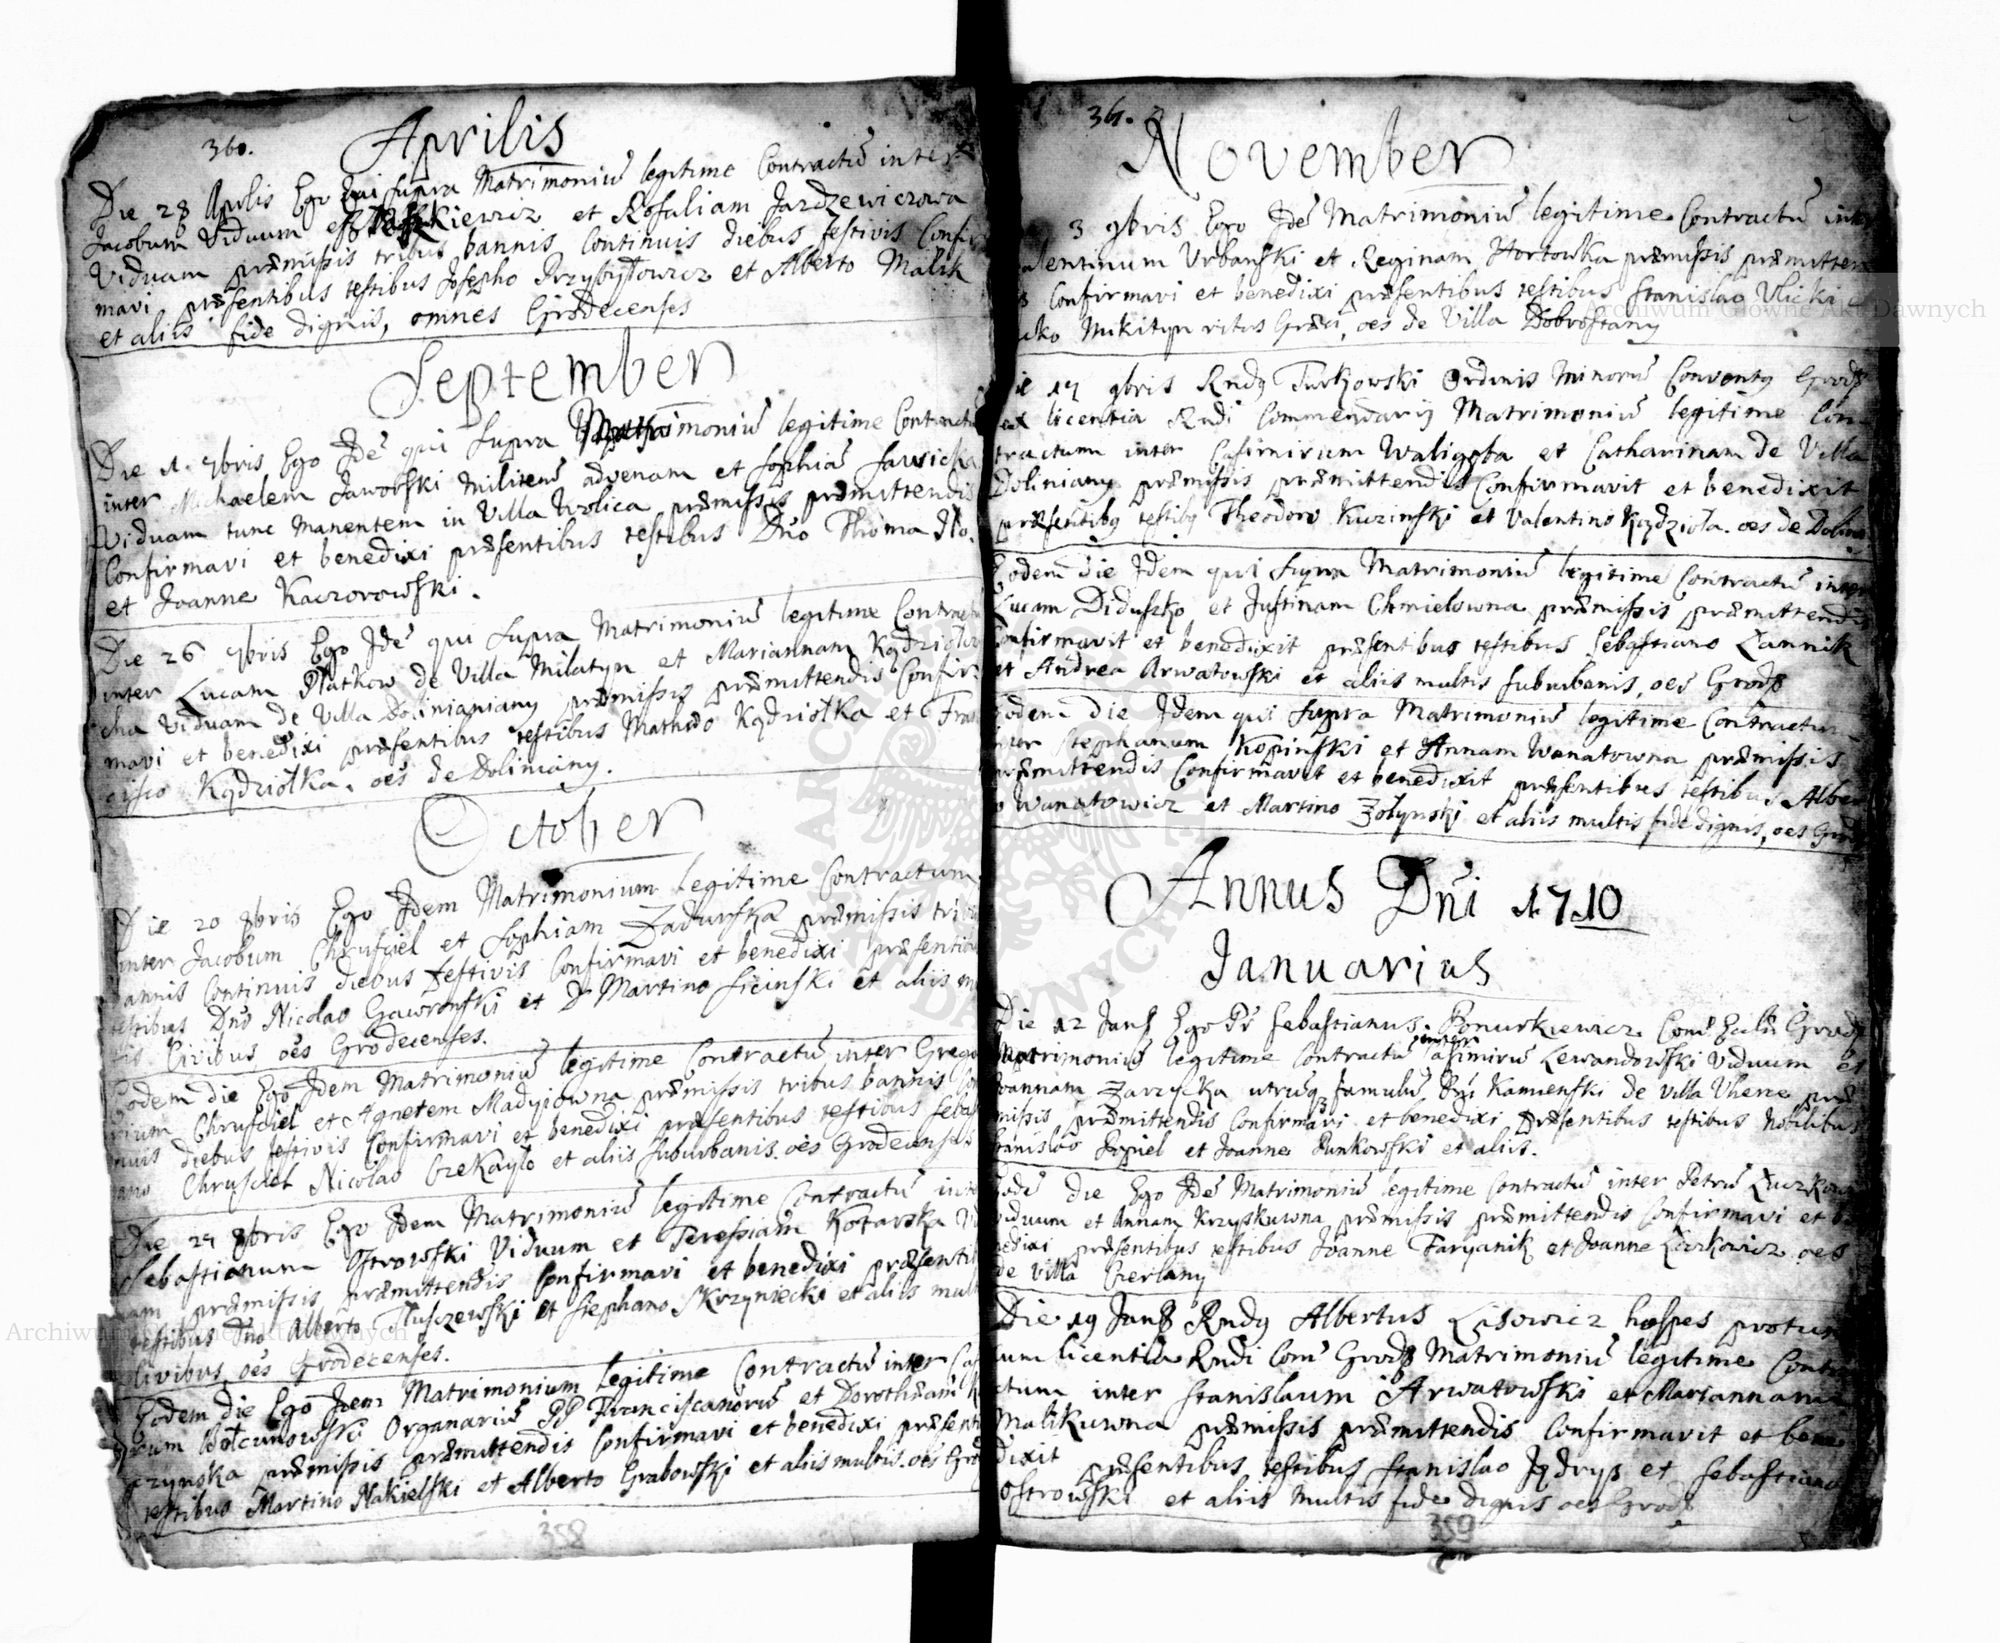 360.
Aprilis
Die 28 Aprilis Ego qui supra Matrimoniū legitime Contractū inter
Jacobum Viduum et Rosaliam Jardzewiczowa
Viduam præmissis tribus bannis Continuis diebus festivis Confir
mavi præsentibus testibus Josepho Przybyłowicz et Alberto Malik
et aliis fide dignis, omnes Grodecenses
September
Die 1. 7bris Ego Idē qui supra Matrimoniū legitime Contractū
inter Michaelem Jaworski Militem advenam et Sophiā Sawicka
Viduam tunc manentem in Villa Wolica præmissis præmittendis
Confirmavi et benedixi præsentibus testibus Dño Thoma No.
et Joanne Kaczorowski.
Die 26 7bris Ego Idē qui supra Matrimoniū legitime Contractū
inter Lucam Płatkow de Villa Milatyn et Mariannam Kądziołow
cha Viduam de Villa Dolinianiany præmissis præmittendis Confir
mavi et benedixi præsentibus testibus Mathæo Kądziołka et Fran
cisco Kądziołka, oēs de Doliniany.
October
Die 20 8bris Ego Idem Matrimonium legitime Contractum
inter Jacobum Chrusciel et Sophiam Zadurska præmissis tribus
bannis Continuis diebus festivis Confirmavi et benedixi præsentibus
testibus Dño Nicolao Gawronski et D Martino Sicinski et aliis
Civibus, oēs Grodecenses.
Eodem die Ego Idem Matrimoniū legitime Contractū inter Grego
rium Chrusciel et Agnetem Madyiowna præmissis tribus bannis Con
nuis diebus festivis Confirmavi et benedixi præsentibus testibus Sebas
iano Chrusciel Nicolao Czekaylo et aliis suburbanis. oēs Grodecenses
Die 27 8bris Ego Idem Matrimoniū legitime Contractū inter
Sebastianum Ostrowski Viduum et Teressiam Kotarska Vi
uam præmissis præmittendis Confirmavi et benedixi præsentib
testibus Dño Alberto Tłuszczewski et Stephano Skrzyniecki et aliis mult
Civibus, oēs Grodecenses.
Eodem die Ego Idem Matrimonium legitime Contractū inter Cas
irum Bołcunowski Organariū PP Franciscanorū et Dorothæam
czynska præmissis præmittendis Confirmavi et benedixi præsenti
testibus Martino Nakielski et Alberto Grabowski et aliis multis. oēs Gro
358
361.
November
3 9bris Ego Idē Matrimoniū legitime Contractū inter
alentinum Urbanski et Reginam Hortowka præmissis præmitten
Confirmavi et benedixi præsentibus testibus Stanislao Ulicki
Mikityn ritus Græci, oēs de Villa Dobrostany
Die 17 9bris Rndg Turkowski Ordinis Minorū Conventg Grods
ex licentia Rndi Commendarij Matrimoniū legitime Con
tractum inter Casimirum Waligoba et Catharinam de Villa
Doliniany præmissis præmittendis Confirmavit et benedixit
præsentibg testibg Theodoro Kuzinski et Valentino Kądzioła. oēs de Dolini
Eodem die Idem qui supra Matrimoniū legitime Contractū inter
Lucam Diduszko et Justinam Chmielowna præmissis præmittendis
Confirmavit et benedixit præsentibus testibus Sebastiano Zannik
et Andrea Arwatowski et aliis multis suburbanis, oēs Grods
Eodem die Idem qui supra Matrimoniū legitime Contractum
inter Stephanum Kopinski et Annam Wanatowna præmissis
præmittendis Confirmavit et benedixit præsentibus testibus Alber
o Wanatowicz et Martino Zołynski et aliis multis fide dignis, oēs Grod
Annus Dñi 1710
Januarius
Die 12 Jans Ego Pr Sebastianus Bonurkiewicz Com Grods
Matrimoniū legitime Contractū inter Casimirū Lewandowski Viduum et
Joannam Zarzycka utrūq famulū Dñi Kamienski de Villa Uherce præ
missis præmittendis Confirmavi et benedixi Præsentibus testibus Nobilibus
Stanislao Popiel et Joanne Runkowski et aliis.
Eodē die Ego Idē Matrimoniū legitime Contractū inter Petrū Łuczkow
viduum et Annam Krzyskuwna præmissis præmittendis Confirmavi et be
nedixi præsentibus testibus Joanne Faryanik et Joanne Luczkowicz oēs
de Villa Czerlany
Die 19 Jans Rndg Albertus Lisowicz hospes
cum licentia Rndi Com Grods Matrimoniū legitime Contra
ctum inter Stanislaum Arwatowski et Mariannam
Malikuwna præmissis præmittendis Confirmavit et bene
dixit præsentibus testibus Stanislao Jędrys et Sebastiano
Ostrowski et aliis multis fide dignis oēs Grods
359
Archiwum Główne Akt Dawnych